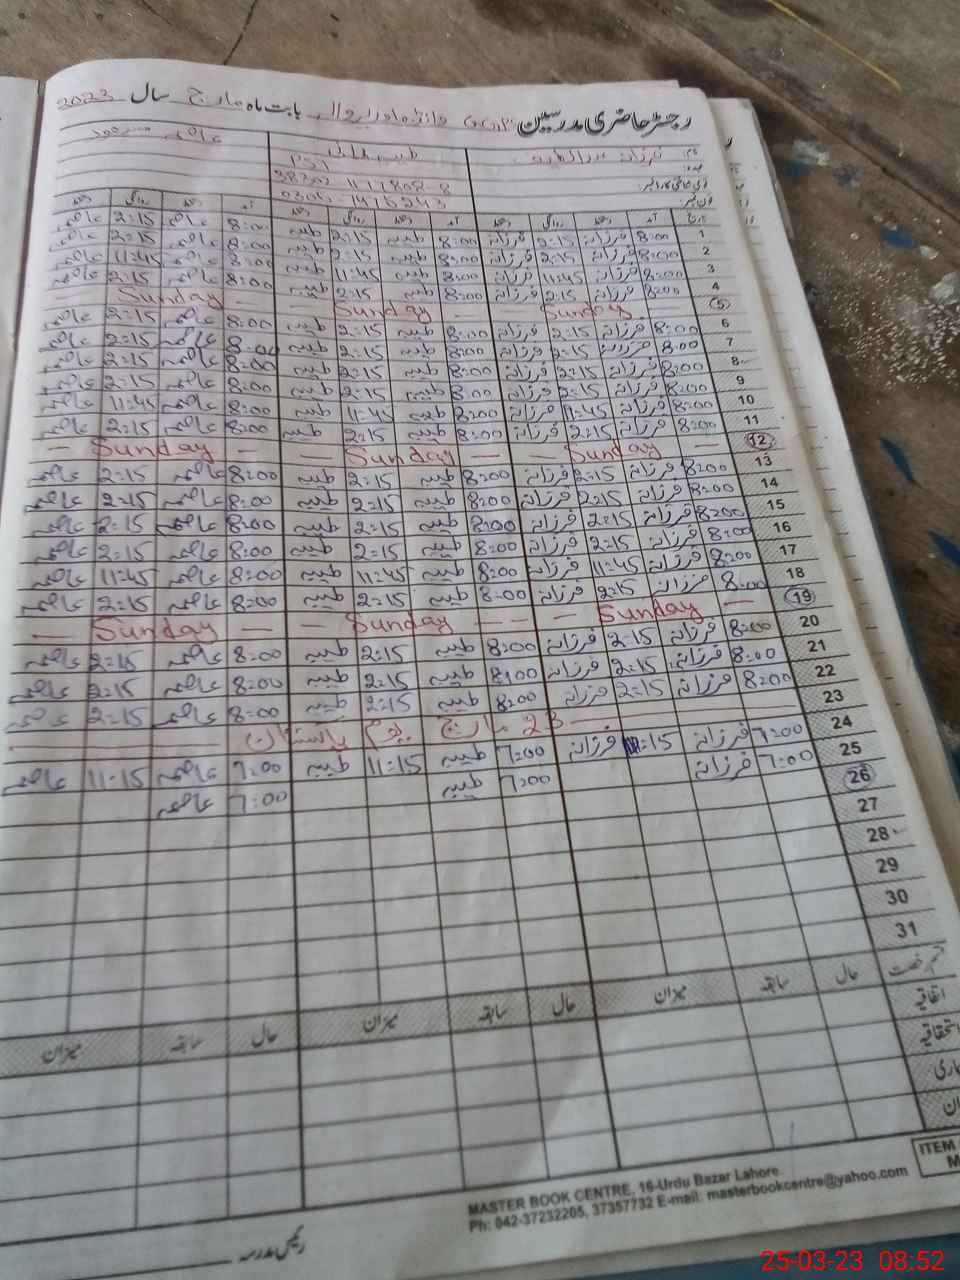 رجسٹر حاضری مدرسین GGPS بابت ماہ مارچ سال 2023
نام: فرزانہ عبداللطیف طیبہ عاصمہ
عہدہ: PST
38302 1177808-8
فون نمبر: 0306-1476243
تاریخ آمد دستخط روانگی دستخط آمد دستخط روانگی دستخط آمد دستخط روانگی دستخط
1 8:00 فرزانہ 2:15 فرزانہ 8:00 طیبہ 2:15 طیبہ 8:00 عاصمہ 2:15 عاصمہ
2 8:00 فرزانہ 2:15 فرزانہ 8:00 طیبہ 2:15 طیبہ 8:00 عاصمہ 2:15 عاصمہ
3 8:00 فرزانہ 11:45 فرزانہ 8:00 طیبہ 11:45 طیبہ 8:00 عاصمہ 11:45 عاصمہ
4 8:00 فرزانہ 2:15 فرزانہ 8:00 طیبہ 2:15 طیبہ 8:00 عاصمہ 2:15 عاصمہ
5 Sunday Sunday Sunday
6 8:00 فرزانہ 2:15 فرزانہ 8:00 طیبہ 2:15 طیبہ 8:00 عاصمہ 2:15 عاصمہ
7 8:00 فرزانہ 2:15 فرزانہ 8:00 طیبہ 2:15 طیبہ 8:00 عاصمہ 2:15 عاصمہ
8 8:00 فرزانہ 2:15 فرزانہ 8:00 طیبہ 2:15 طیبہ 8:00 عاصمہ 2:15 عاصمہ
9 8:00 فرزانہ 2:15 فرزانہ 8:00 طیبہ 2:15 طیبہ 8:00 عاصمہ 2:15 عاصمہ
10 8:00 فرزانہ 11:45 فرزانہ 8:00 طیبہ 11:45 طیبہ 8:00 عاصمہ 11:45 عاصمہ
11 8:00 فرزانہ 2:15 فرزانہ 8:00 طیبہ 2:15 طیبہ 8:00 عاصمہ 2:15 عاصمہ
12 Sunday Sunday Sunday
13 8:00 فرزانہ 2:15 فرزانہ 8:00 طیبہ 2:15 طیبہ 8:00 عاصمہ 2:15 عاصمہ
14 8:00 فرزانہ 2:15 فرزانہ 8:00 طیبہ 2:15 طیبہ 8:00 عاصمہ 2:15 عاصمہ
15 8:00 فرزانہ 2:15 فرزانہ 8:00 طیبہ 2:15 طیبہ 8:00 عاصمہ 2:15 عاصمہ
16 8:00 فرزانہ 2:15 فرزانہ 8:00 طیبہ 2:15 طیبہ 8:00 عاصمہ 2:15 عاصمہ
17 8:00 فرزانہ 11:45 فرزانہ 8:00 طیبہ 11:45 طیبہ 8:00 عاصمہ 11:45 عاصمہ
18 8:00 فرزانہ 2:15 فرزانہ 8:00 طیبہ 2:15 طیبہ 8:00 عاصمہ 2:15 عاصمہ
19 Sunday Sunday Sunday
20 8:00 فرزانہ 2:15 فرزانہ 8:00 طیبہ 2:15 طیبہ 8:00 عاصمہ 2:15 عاصمہ
21 8:00 فرزانہ 2:15 فرزانہ 8:00 طیبہ 2:15 طیبہ 8:00 عاصمہ 2:15 عاصمہ
22 8:00 فرزانہ 2:15 فرزانہ 8:00 طیبہ 2:15 طیبہ 8:00 عاصمہ 2:15 عاصمہ
23 23 مارچ یوم پاکستان
24 7:00 فرزانہ :15 فرزانہ 7:00 طیبہ 11:15 طیبہ 7:00 عاصمہ 11:15 عاصمہ
25 7:00 فرزانہ 7:00 طیبہ 7:00 عاصمہ
26
27
28
29
30
31
قسم رخصت حال سابقہ میزان حال سابقہ میزان حال سابقہ میزان
اتفاقیہ
استحقاقیہ
ماری
ان
ITEM
MASTER BOOK CENTRE, 16-Urdu Bazar Lahore.
Ph: 042-37232205, 37357732 E-mail: masterbookcentre@yahoo.com
رئیس مدرسہ
25-03-23 08:52